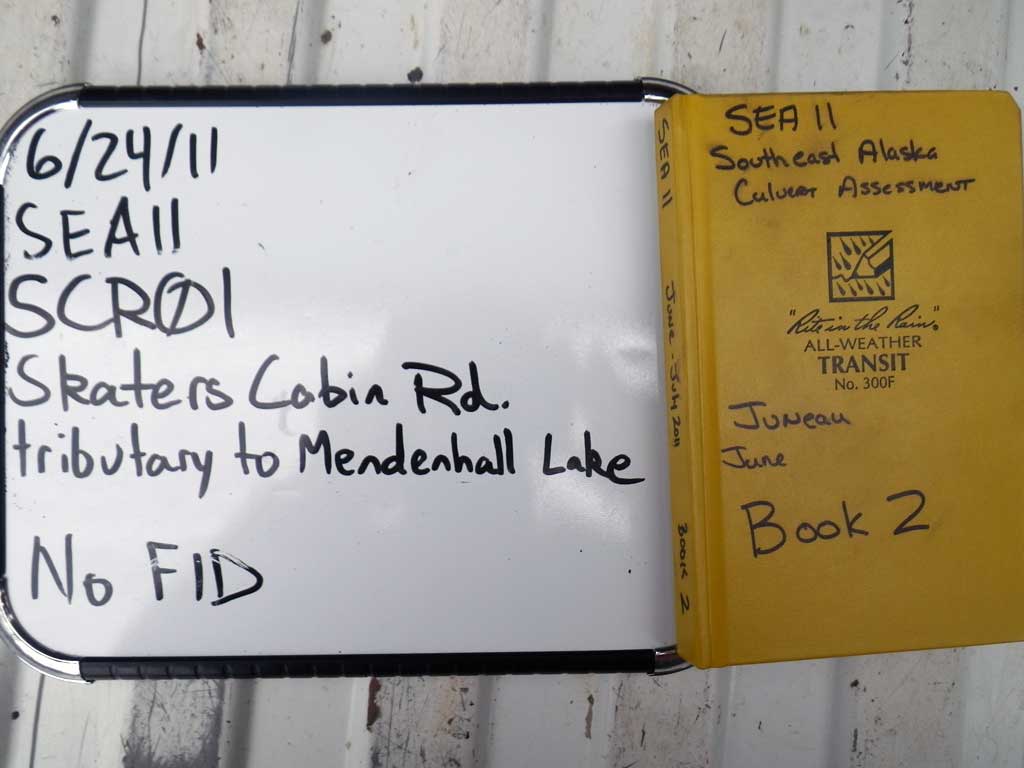 6/24/11
SEA11
SCRØ1
Skaters Cabin Rd.
tributary to Mendenhall Lake
No FID
SEA 11 June - July 2011 BOOK 2
SEA 11
Southeast Alaska
Culvert Assessment
"Rite in the Rain"®
ALL-WEATHER
TRANSIT
No. 300F
Juneau
June
Book 2